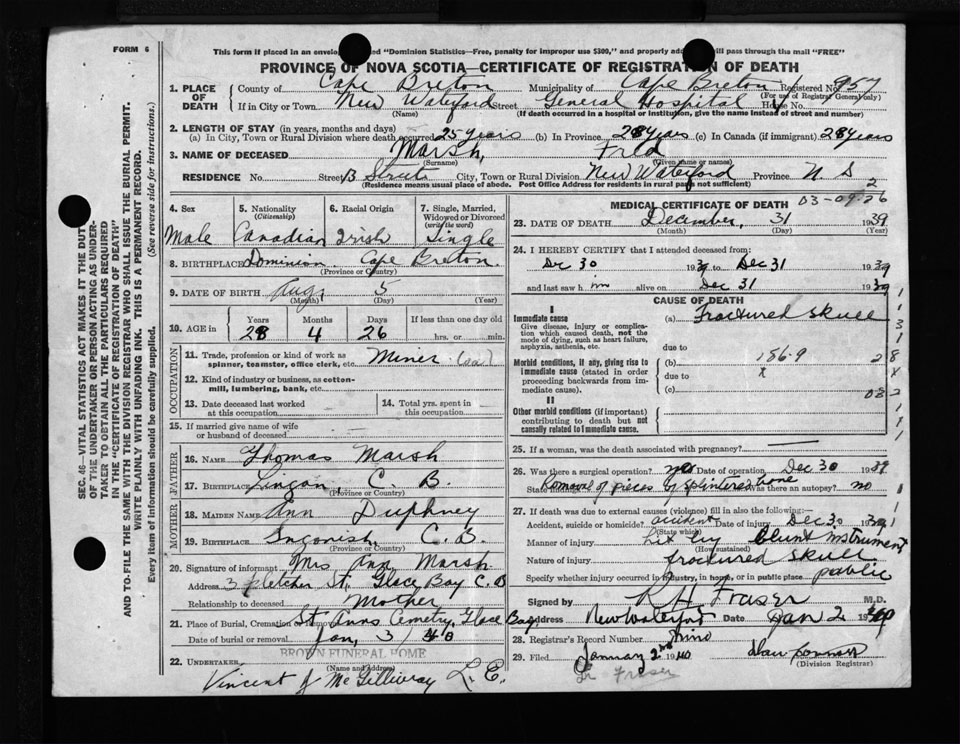 FORM 6
This form if placed in an envelo "Dominion Statistics—Free, penalty for improper use $300," and properly add will pass through the mail "FREE"
PROVINCE OF NOVA SCOTIA—CERTIFICATE OF REGISTRATION OF DEATH
SEC. 46—VITAL STATISTICS ACT MAKES IT THE DUTY
OF THE UNDERTAKER OR PERSON ACTING AS UNDER-
TAKER TO OBTAIN ALL THE PARTICULARS REQUIRED
IN THE "CERTIFICATE OF REGISTRATION OF DEATH"
AND TO FILE THE SAME WITH THE DIVISION REGISTRAR WHO SHALL ISSUE THE BURIAL PERMIT.
WRITE PLAINLY WITH UNFADING INK. THIS IS A PERMANENT RECORD.
Every item of information should be carefully supplied. (See reverse side for instructions.)
1. PLACE OF DEATH County of Cape Breton Municipality of Cape Breton Registered No. 957
(For use of Registrar General only)
If in City or Town New Waterford Street General Hospital House No.
(Name) (If death occurred in a hospital or institution, give the name instead of street and number)
2. LENGTH OF STAY (in years, months and days)
(a) In City, Town or Rural Division where death occurred 25 years (b) In Province 28 years (c) In Canada (if immigrant) 28 years
3. NAME OF DECEASED Marsh, Fred
(Surname) (Given name or names)
RESIDENCE No. Street B Street City, Town or Rural Division New Waterford Province N. S
(Residence means usual place of abode. Post Office Address for residents in rural parts not sufficient)
4. Sex Male
5. Nationality (Citizenship) Canadian
6. Racial Origin Irish
7. Single, Married, Widowed or Divorced (write the word) Single
8. BIRTHPLACE Dominion Cape Breton
(Province or Country)
9. DATE OF BIRTH Aug, 5
(Month) (Day) (Year)
10. AGE in Years Months Days If less than one day old
28 4 26 hrs. or min.
OCCUPATION
11. Trade, profession or kind of work as spinner, teamster, office clerk, etc. Miner
12. Kind of industry or business, as cotton-mill, lumbering, bank, etc.
13. Date deceased last worked at this occupation
14. Total yrs. spent in this occupation
15. If married give name of wife or husband of deceased —
FATHER
16. NAME Thomas Marsh
17. BIRTHPLACE Lingan, C. B.
(Province or Country)
MOTHER
18. MAIDEN NAME Ann Duphney
19. BIRTHPLACE Ingonish C. B.
(Province or Country)
20. Signature of informant Mrs Ann Marsh
Address 3 Fletcher St. Glace Bay C. B
Relationship to deceased Mother
21. Place of Burial, Cremation or Removal St Anns Cemetry, Glace Bay
Date of burial or removal Jan, 3/40
BROWN FUNERAL HOME
22. UNDERTAKER
(Name and Address)
Vincent J McGillivray L. E.
2
03-09-26
MEDICAL CERTIFICATE OF DEATH
23. DATE OF DEATH December, 31 1939
(Month) (Day) (Year)
24. I HEREBY CERTIFY that I attended deceased from:
Dec 30 1939 to Dec 31 1939
and last saw him alive on Dec 31 1939
CAUSE OF DEATH
I
Immediate cause (a) Fractured skull
Give disease, injury or complication which caused death, not the mode of dying, such as heart failure, asphyxia, asthenia, etc.
due to
Morbid conditions, if any, giving rise to immediate cause (stated in order proceeding backwards from immediate cause).
(b) 186-9
due to
(c)
II
Other morbid conditions (if important) contributing to death but not causally related to immediate cause.
25. If a woman, was the death associated with pregnancy? —
26. Was there a surgical operation? yes Date of operation Dec 30 1939
State findings Removal of pieces of splintered bone Was there an autopsy? no
27. If death was due to external causes (violence) fill in also the following:—
Accident, suicide or homicide? accident Date of injury Dec 30 1939
(State which)
Manner of injury Hit by Blunt instrument
(How sustained)
Nature of injury fractured skull
Specify whether injury occurred in industry, in home, or in public place public
Signed by R H Fraser M.D.
Address New Waterford Date Jan 2 1940
28. Registrar's Record Number
29. Filed January 2nd 1940
(Division Registrar)
Dr Fraser